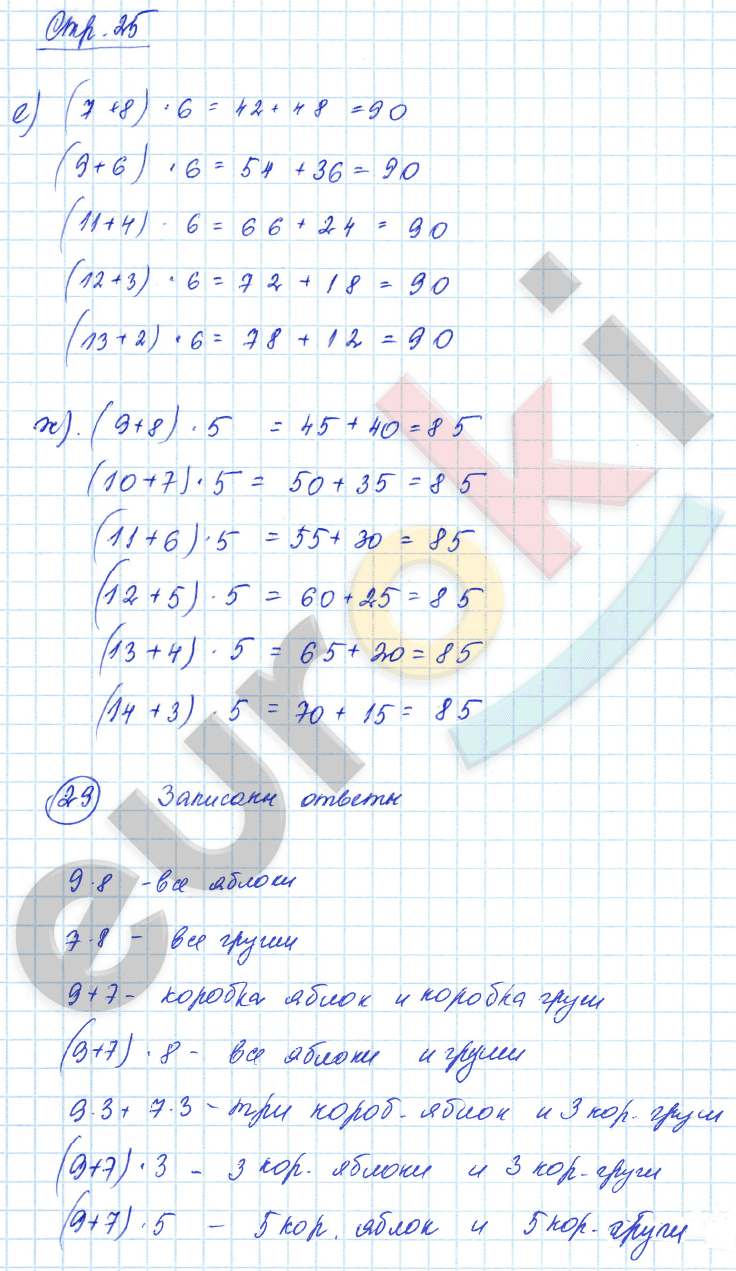 Стр. 25
е) (7+8) · 6 = 42 + 48 = 90
(9+6) · 6 = 54 + 36 = 90
(11+4) · 6 = 66 + 24 = 90
(12+3) · 6 = 72 + 18 = 90
(13+2) · 6 = 78 + 12 = 90
ж). (9+8) · 5 = 45 + 40 = 85
(10+7) · 5 = 50 + 35 = 85
(11+6) · 5 = 55 + 30 = 85
(12+5) · 5 = 60 + 25 = 85
(13+4) · 5 = 65 + 20 = 85
(14+3) · 5 = 70 + 15 = 85
29 Записаны ответы
9·8 - все яблоки
7·8 - все груши
9+7 - коробка яблок и коробка груш
(9+7) · 8 - все яблоки и груши
9·3 + 7·3 - три короб. яблок и 3 кор. груш
(9+7) · 3 - 3 кор. яблоки и 3 кор. груши
(9+7) · 5 - 5 кор. яблок и 5 кор. груши
euroki